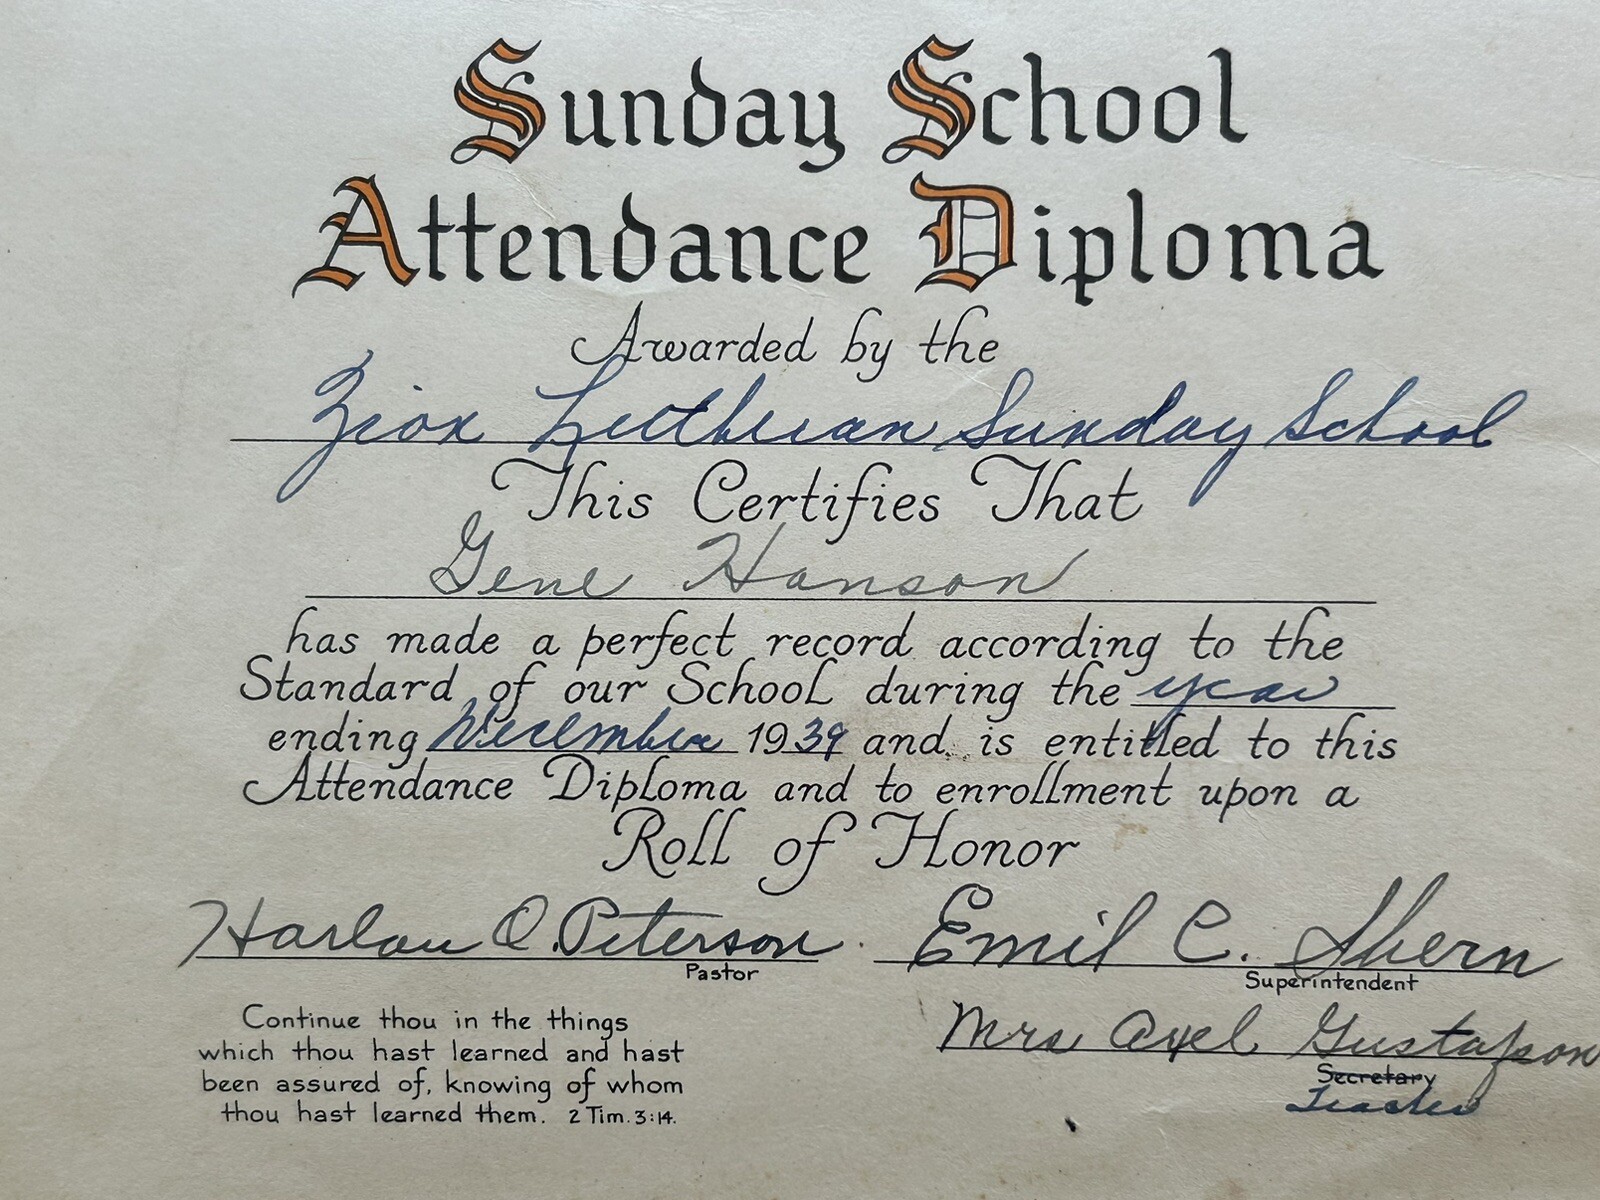 Sunday School
Attendance Diploma
Awarded by the
Zion Lutheran Sunday School
This Certifies That
Gene Hanson
has made a perfect record according to the
Standard of our School during the year
ending December 1939 and is entitled to this
Attendance Diploma and to enrollment upon a
Roll of Honor
Harlan O. Peterson Emil C. Shern
Pastor Superintendent
Mrs Axel Gustafson
Secretary
Teacher
Continue thou in the things
which thou hast learned and hast
been assured of, knowing of whom
thou hast learned them. 2 Tim. 3:14.